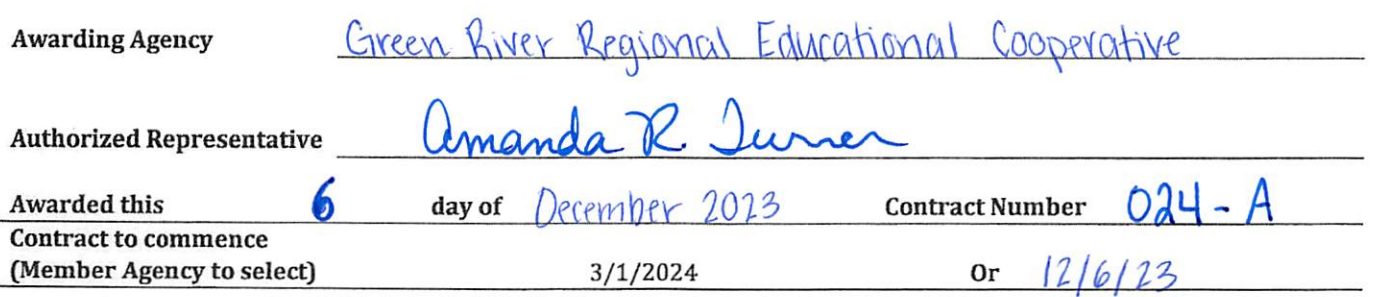 Awarding Agency Green River Regional Educational Cooperative
Authorized Representative Amanda R. Turner
Awarded this 6 day of December 2023 Contract Number 024-A
Contract to commence
(Member Agency to select) 3/1/2024 Or 12/6/23